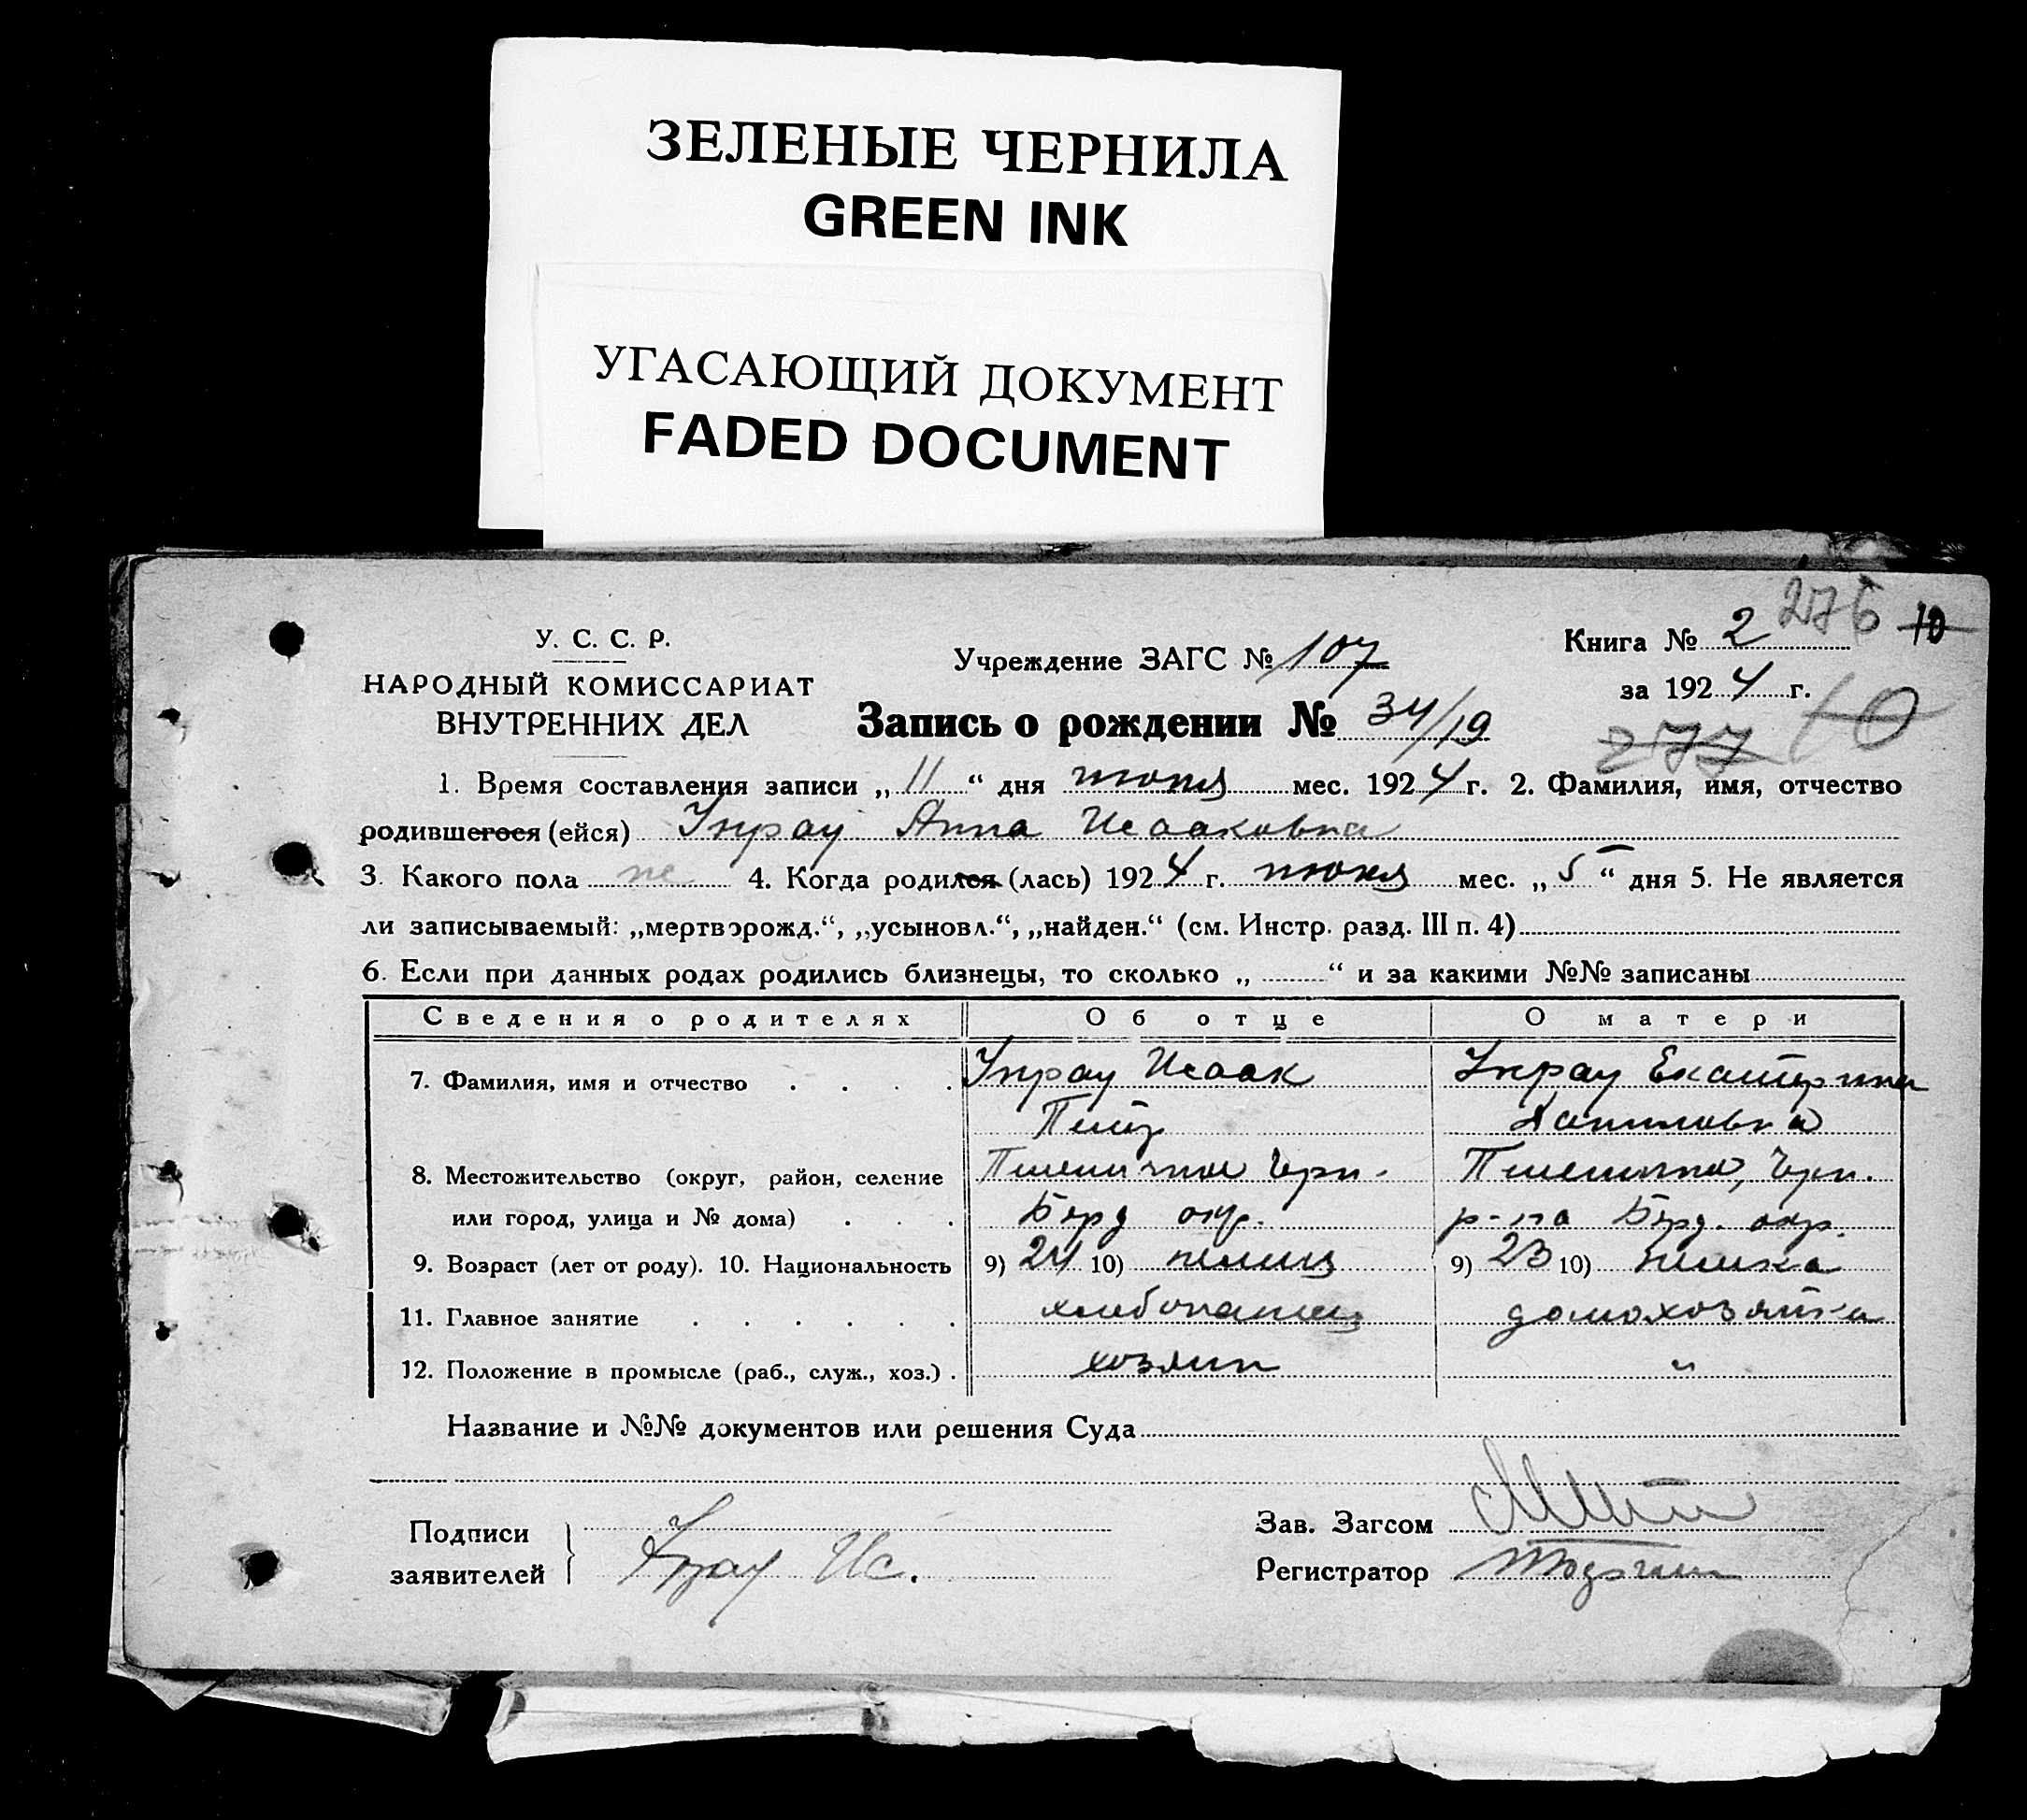 ЗЕЛЕНЫЕ ЧЕРНИЛА
GREEN INK
УГАСАЮЩИЙ ДОКУМЕНТ
FADED DOCUMENT
276 10
У. С. С. Р.
НАРОДНЫЙ КОМИССАРИАТ
ВНУТРЕННИХ ДЕЛ
Учреждение ЗАГС № 107
Запись о рождении № 34/19
Книга № 2
за 1924 г.
277 10
1. Время составления записи „ 11 “ дня июня мес. 1924 г. 2. Фамилия, имя, отчество
родившегося (ейся) Унрау Анна Исааковна
3. Какого пола же 4. Когда родился (лась) 1924 г. июня мес. „ 5 “ дня 5. Не является
ли записываемый: „мертворожд.“, „усыновл.“, „найден.“ (см. Инстр. разд. III п. 4)
6. Если при данных родах родились близнецы, то сколько „ “ и за какими №№ записаны
Сведения о родителях Об отце О матери
7. Фамилия, имя и отчество Унрау Исаак Унрау Екатерина
8. Местожительство (округ, район, селение Пшенична Черн. Пшенична, Черн.
или город, улица и № дома) Берд окр. р-на Берд. окр.
9. Возраст (лет от роду). 10. Национальность 9) 24 10) немец 9) 23 10) немка
11. Главное занятие хлебопашец домохозяйка
12. Положение в промысле (раб., служ., хоз.) хозяин "
Название и №№ документов или решения Суда
Подписи
заявителей Унрау Ис.
Зав. Загсом
Регистратор